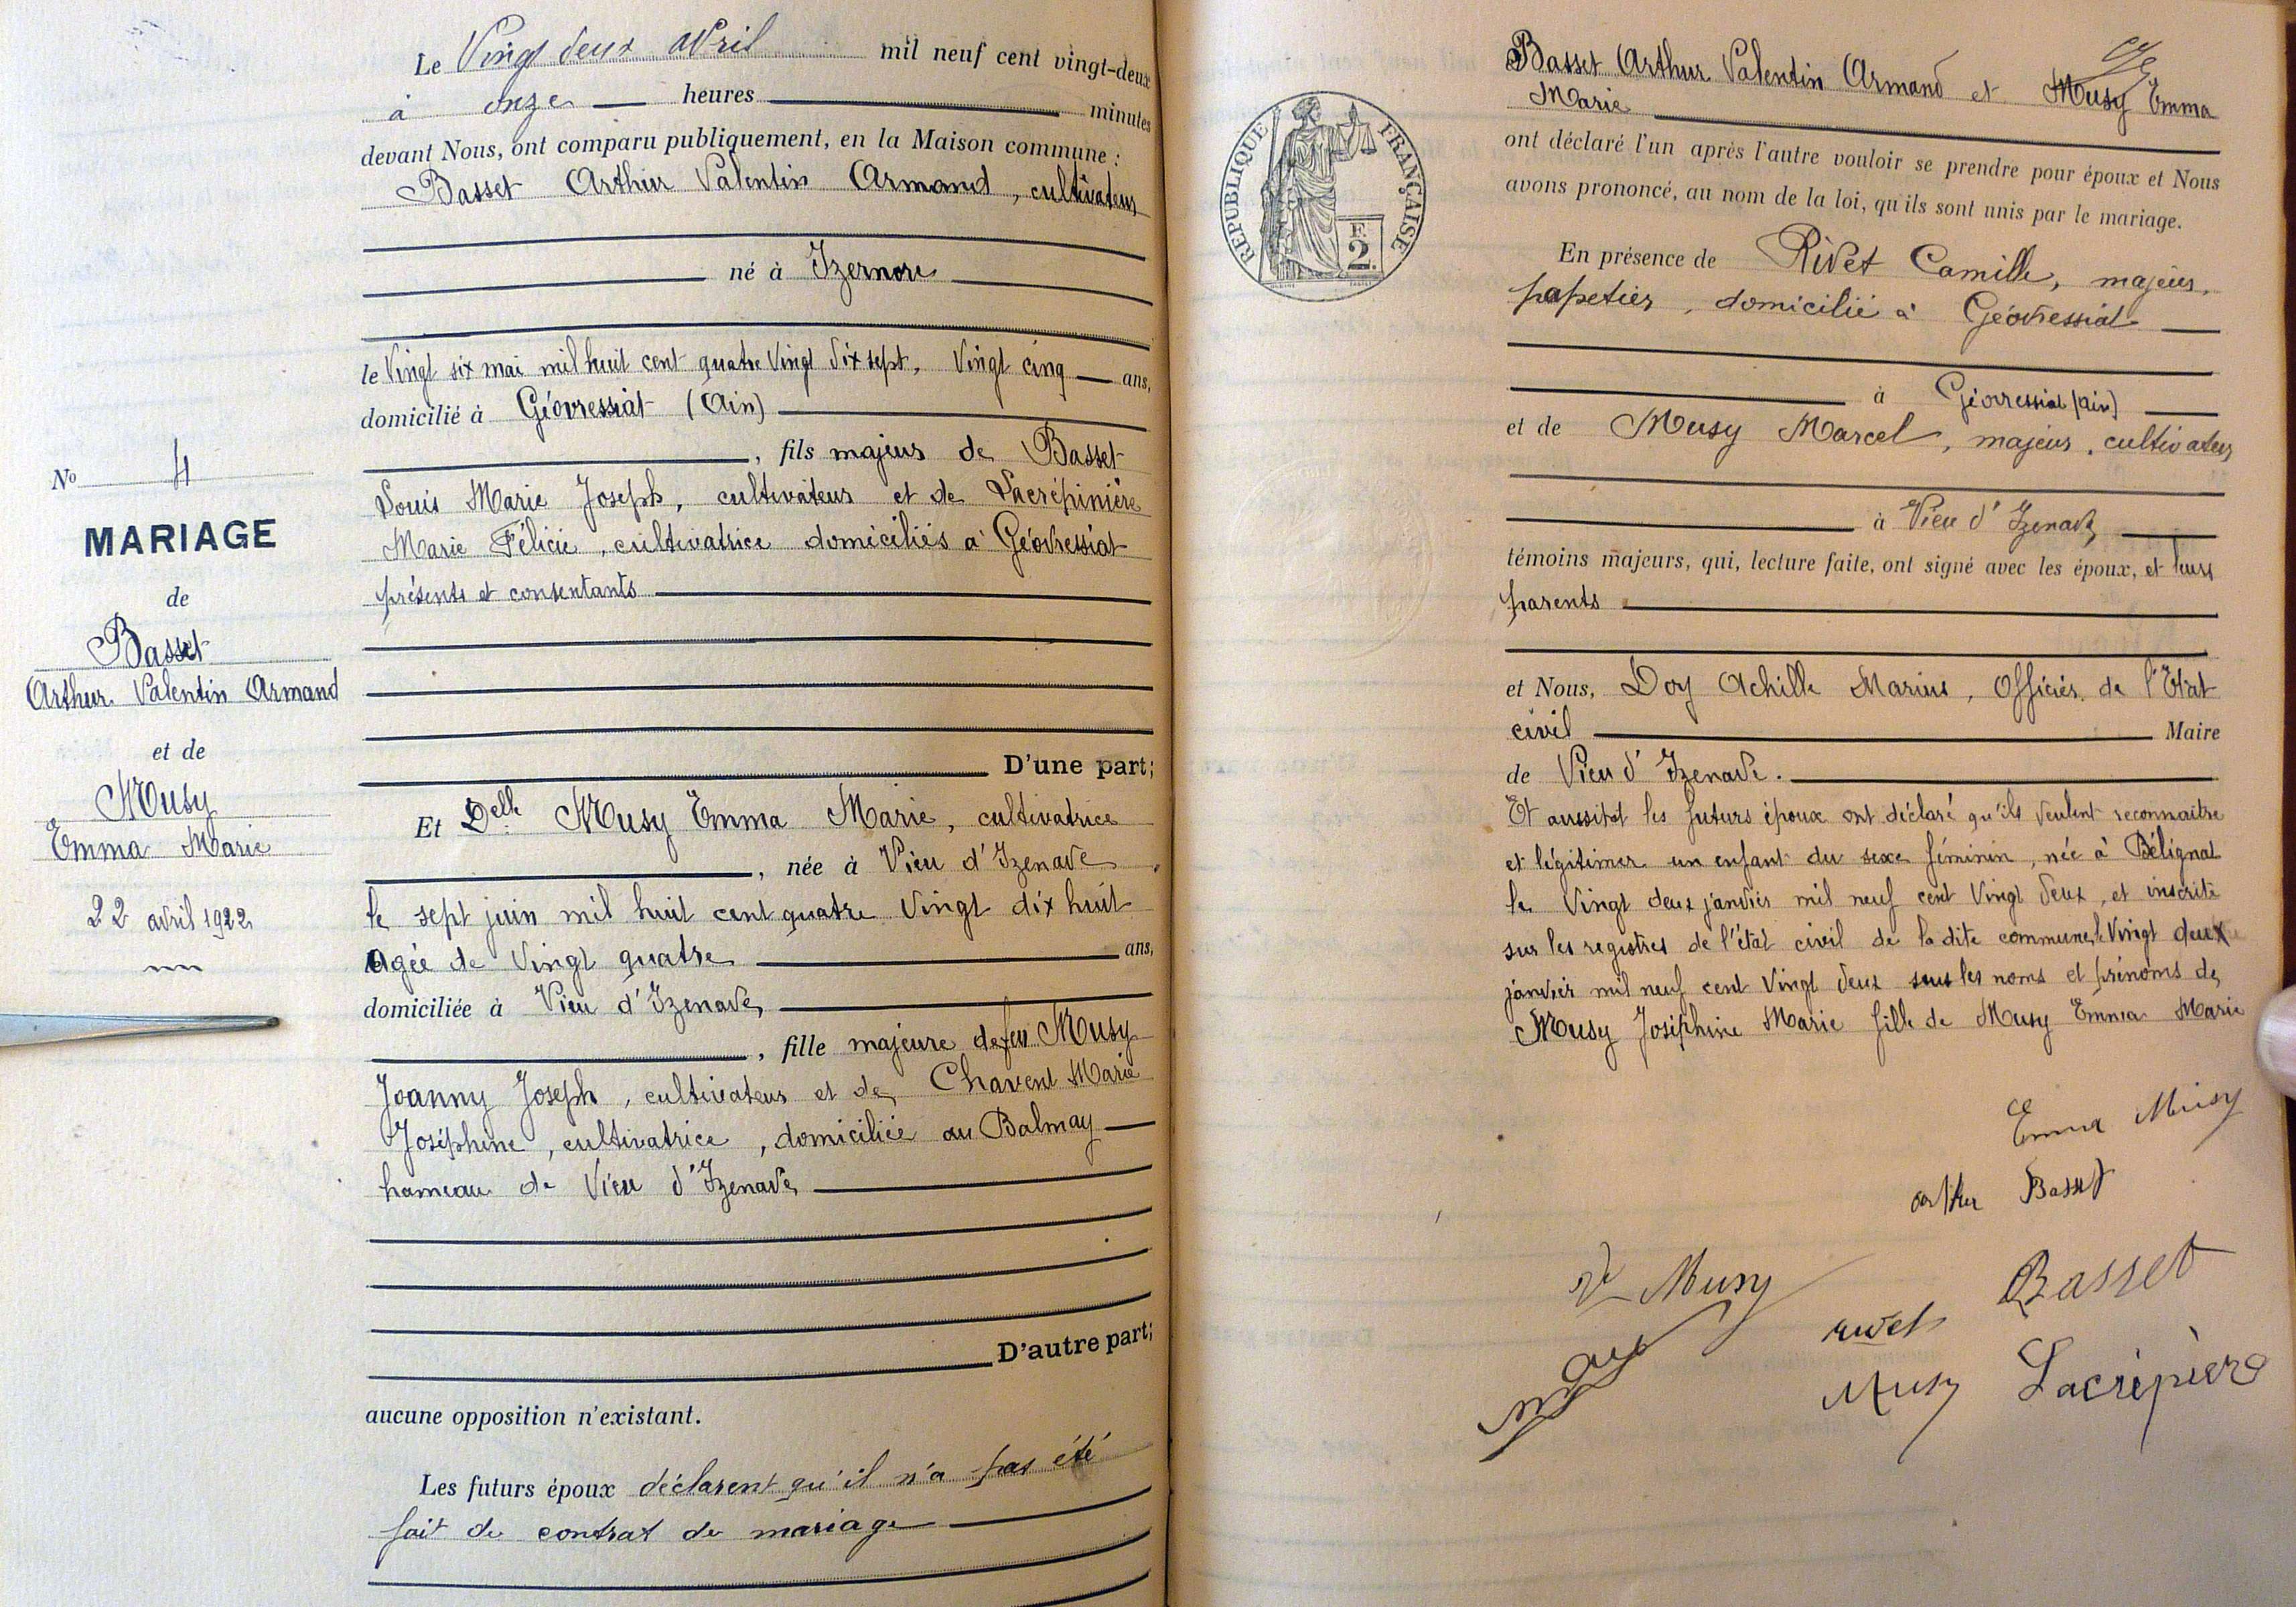 Le Vingt deux avril mil neuf cent vingt-deux
à onze heures minutes
devant Nous, ont comparu publiquement, en la Maison commune :
Basset Arthur Valentin Armand, cultivateur
né à Izernore
le Vingt six mai mil huit cent quatre Vingt dix sept, Vingt cinq ans,
domicilié à Géovressiat (Ain)
, fils majeur de Basset
Louis Marie Joseph, cultivateur et de Lacrépinière
Marie Félicie, cultivatrice domiciliés à Géovressiat
présents et consentants
D'une part;
Et Delle Musy Emma Marie, cultivatrice
, née à Vieu d'Izenave
le sept juin mil huit cent quatre Vingt dix huit
agée de Vingt quatre ans,
domiciliée à Vieu d'Izenave
, fille majeure de feu Musy
Joanny Joseph, cultivateur et de Chavent Marie
Joséphine, cultivatrice, domiciliée au Balmay
hameau de Vieu d'Izenave
D'autre part;
aucune opposition n'existant.
Les futurs époux déclarent qu'il n'a pas été
fait de contrat de mariage
No 4
MARIAGE
de
Basset
Arthur Valentin Armand
et de
Musy
Emma Marie
22 avril 1922
RÉPUBLIQUE FRANÇAISE
F.
2.
Basset Arthur Valentin Armand et Musy Emma
Marie
ont déclaré l'un après l'autre vouloir se prendre pour époux et Nous
avons prononcé, au nom de la loi, qu'ils sont unis par le mariage.
En présence de Rivet Camille, majeur,
papetier, domicilié à Géovressiat
à Géovressiat (Ain)
et de Musy Marcel, majeur, cultivateur
à Vieu d'Izenave
témoins majeurs, qui, lecture faite, ont signé avec les époux, et leurs
parents
et Nous, Doy Achille Marius, Officier de l'Etat
civil Maire
de Vieu d'Izenave.
Et aussitôt les futurs époux ont déclaré qu'ils veulent reconnaitre
et légitimer un enfant du sexe féminin, née à Bélignat
le Vingt deux janvier mil neuf cent Vingt deux, et inscrite
sur les registres de l'état civil de la dite commune, le Vingt deux
janvier mil neuf cent Vingt deux sous les noms et prénoms de
Musy Joséphine Marie fille de Musy Emma Marie
Emma Musy
arthur Basset
Ve Musy
rivet Basset
Musy Lacrépière